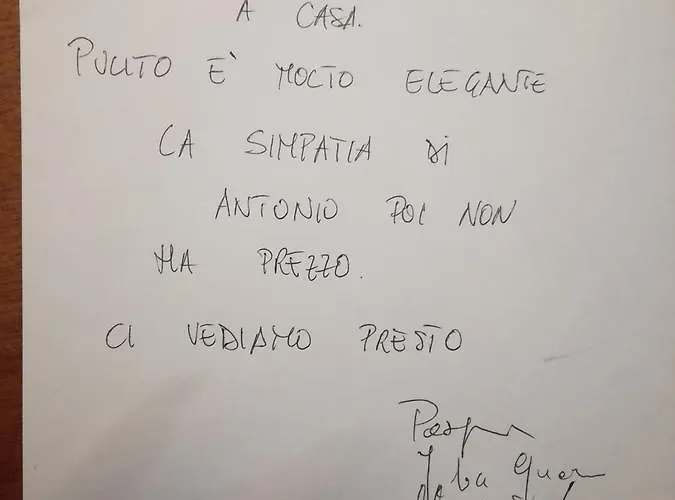 A CASA.
PULITO E' MOLTO ELEGANTE
LA SIMPATIA DI
ANTONIO POI NON
HA PREZZO.
CI VEDIAMO PRESTO